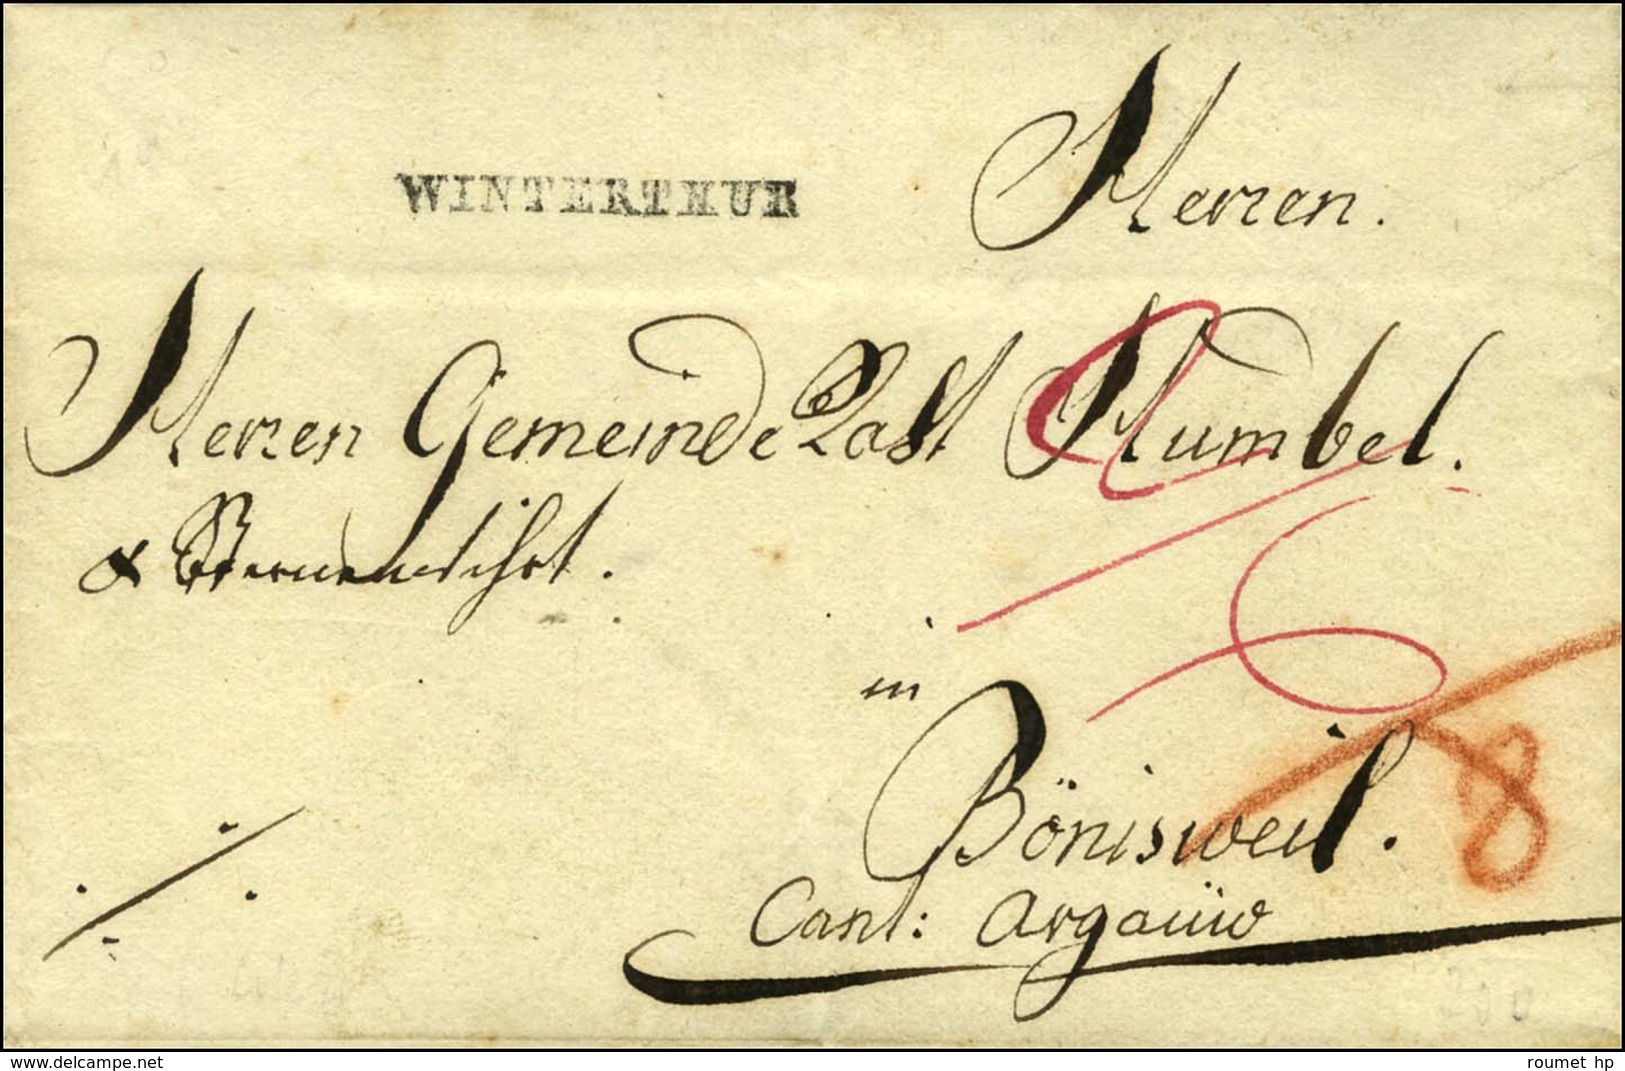 WINTERTHUR
Herren.
Herren Gemeinde Rath Humbel.
&
in
Bönisweil.
Cant: Argaüw
8
delcampe.net
roumet hp